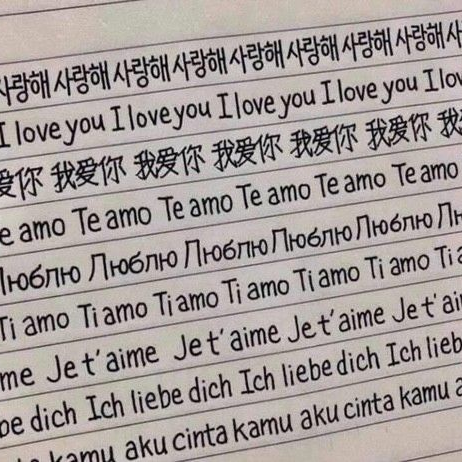 사랑해 사랑해 사랑해 사랑해 사랑해 사랑해 사랑해 사랑해 사
I love you I love you I love you I love you I lov
爱你 我爱你 我爱你 我爱你 我爱你 我爱你 我
e amo Te amo Te amo Te amo Te amo Te amo
Люблю Люблю Люблю Люблю Люблю Лю
Ti amo Ti amo Ti amo Ti amo Ti amo Ti amo Ti a
me Je t'aime Je t'aime Je t'aime Je t'ai
be dich Ich liebe dich Ich liebe dich Ich lieb
kamu aku cinta kamu aku cinta kamu a